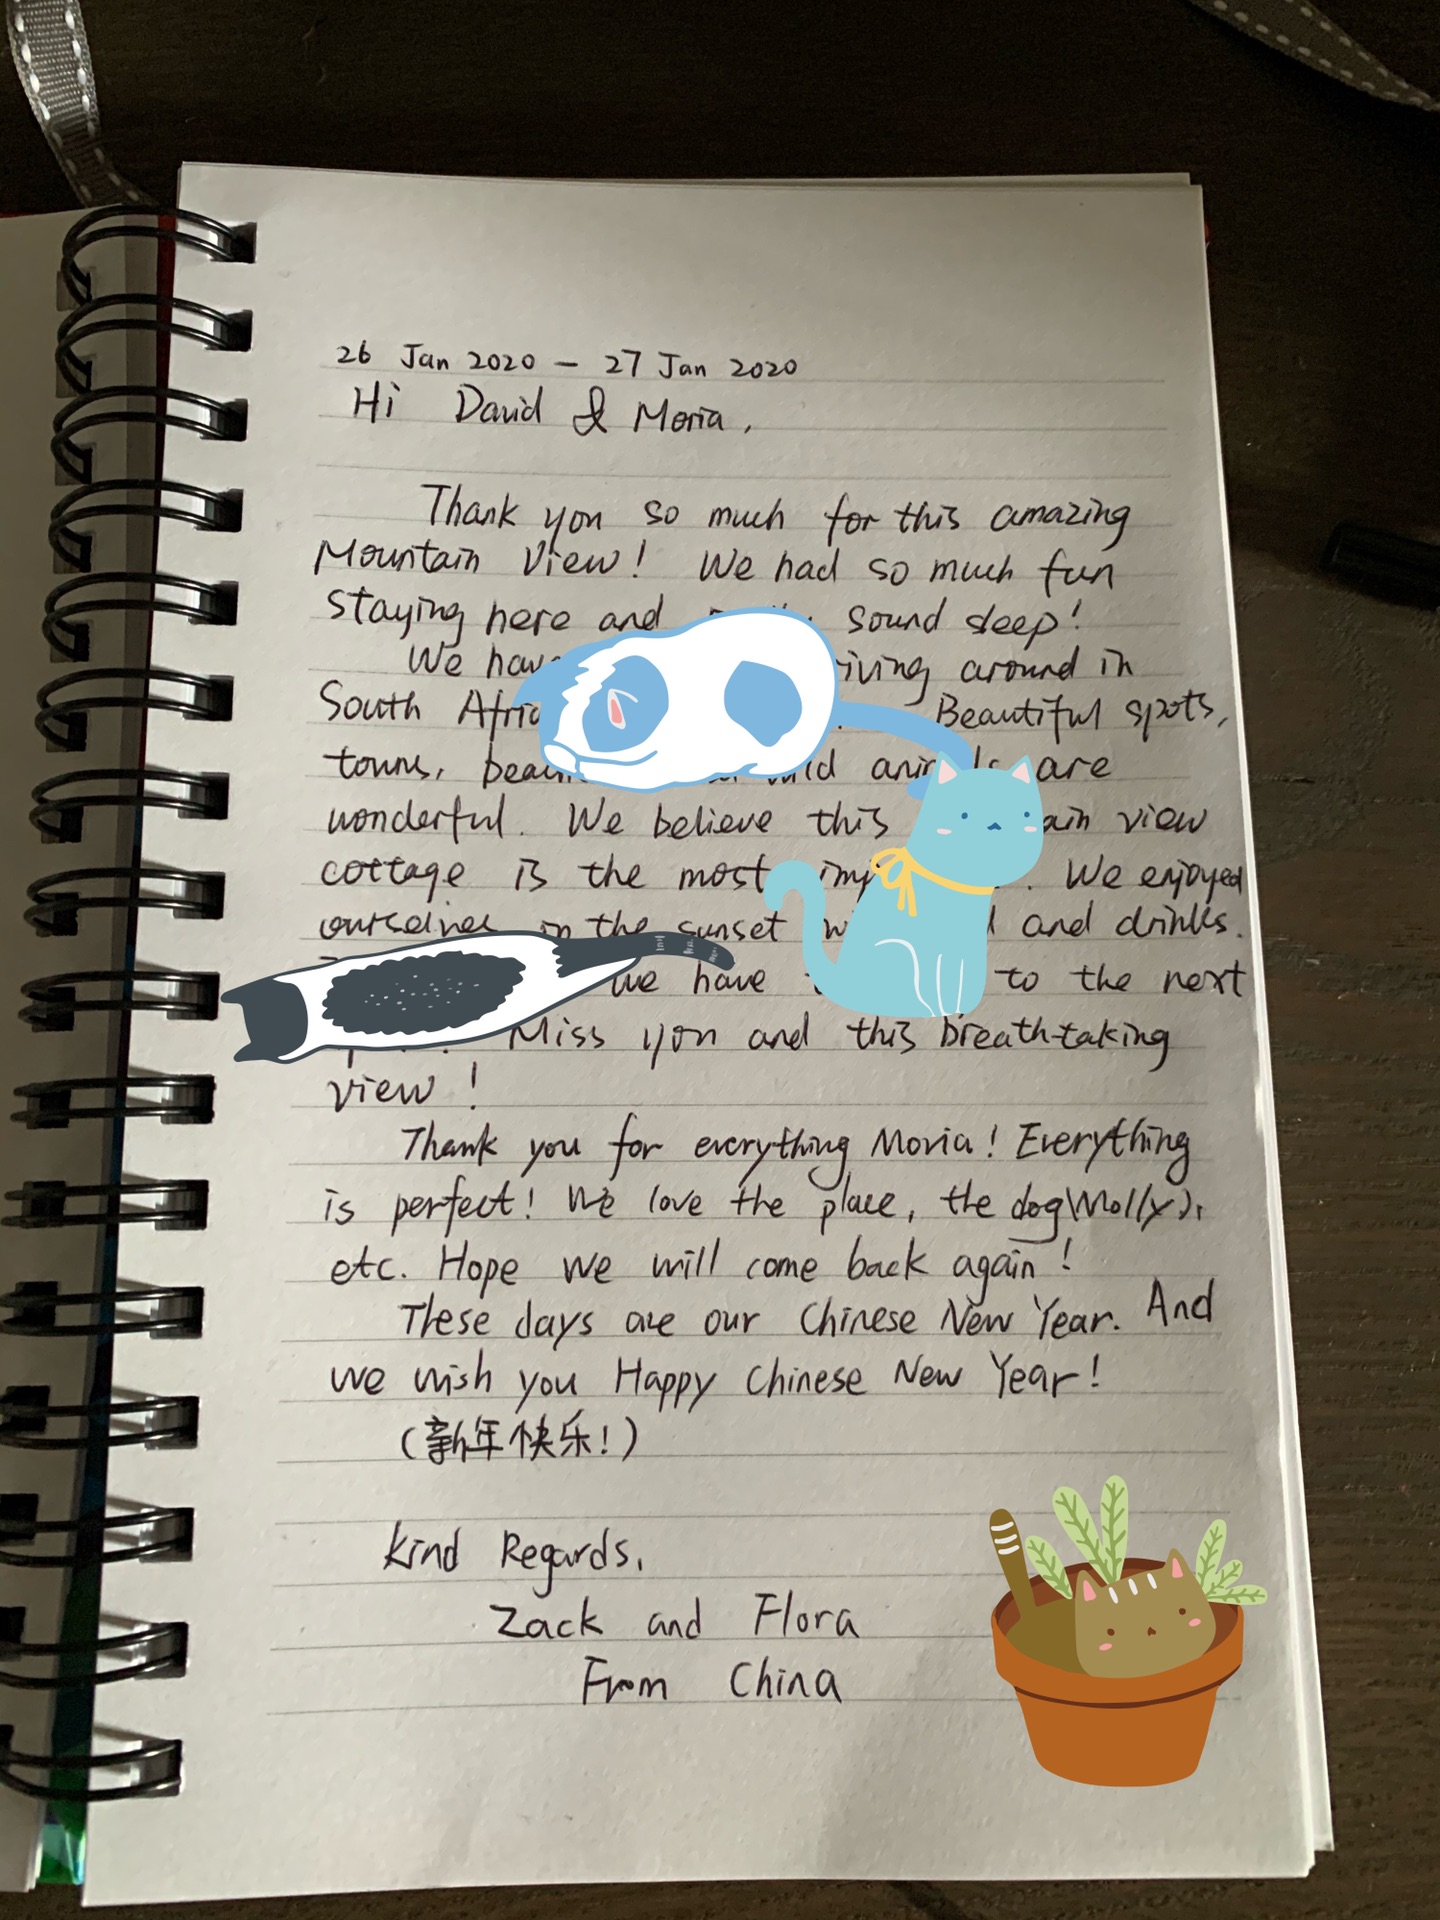 26 Jan 2020 — 27 Jan 2020
Hi David & Moria,
Thank you so much for this amazing
Mountain View! We had so much fun
staying here and sound sleep!
We have around in
South Beautiful spots,
towns, are
wonderful. We believe this view
cottage is the most We enjoyed
ourselves in the sunset and drinks.
we have to the next
Miss you and this breath-taking
view!
Thank you for everything Moria! Everything
is perfect! We love the place, the dog(Molly),
etc. Hope we will come back again!
These days are our Chinese New Year. And
we wish you Happy Chinese New Year!
(新年快乐!)
Kind Regards,
Zack and Flora
From China